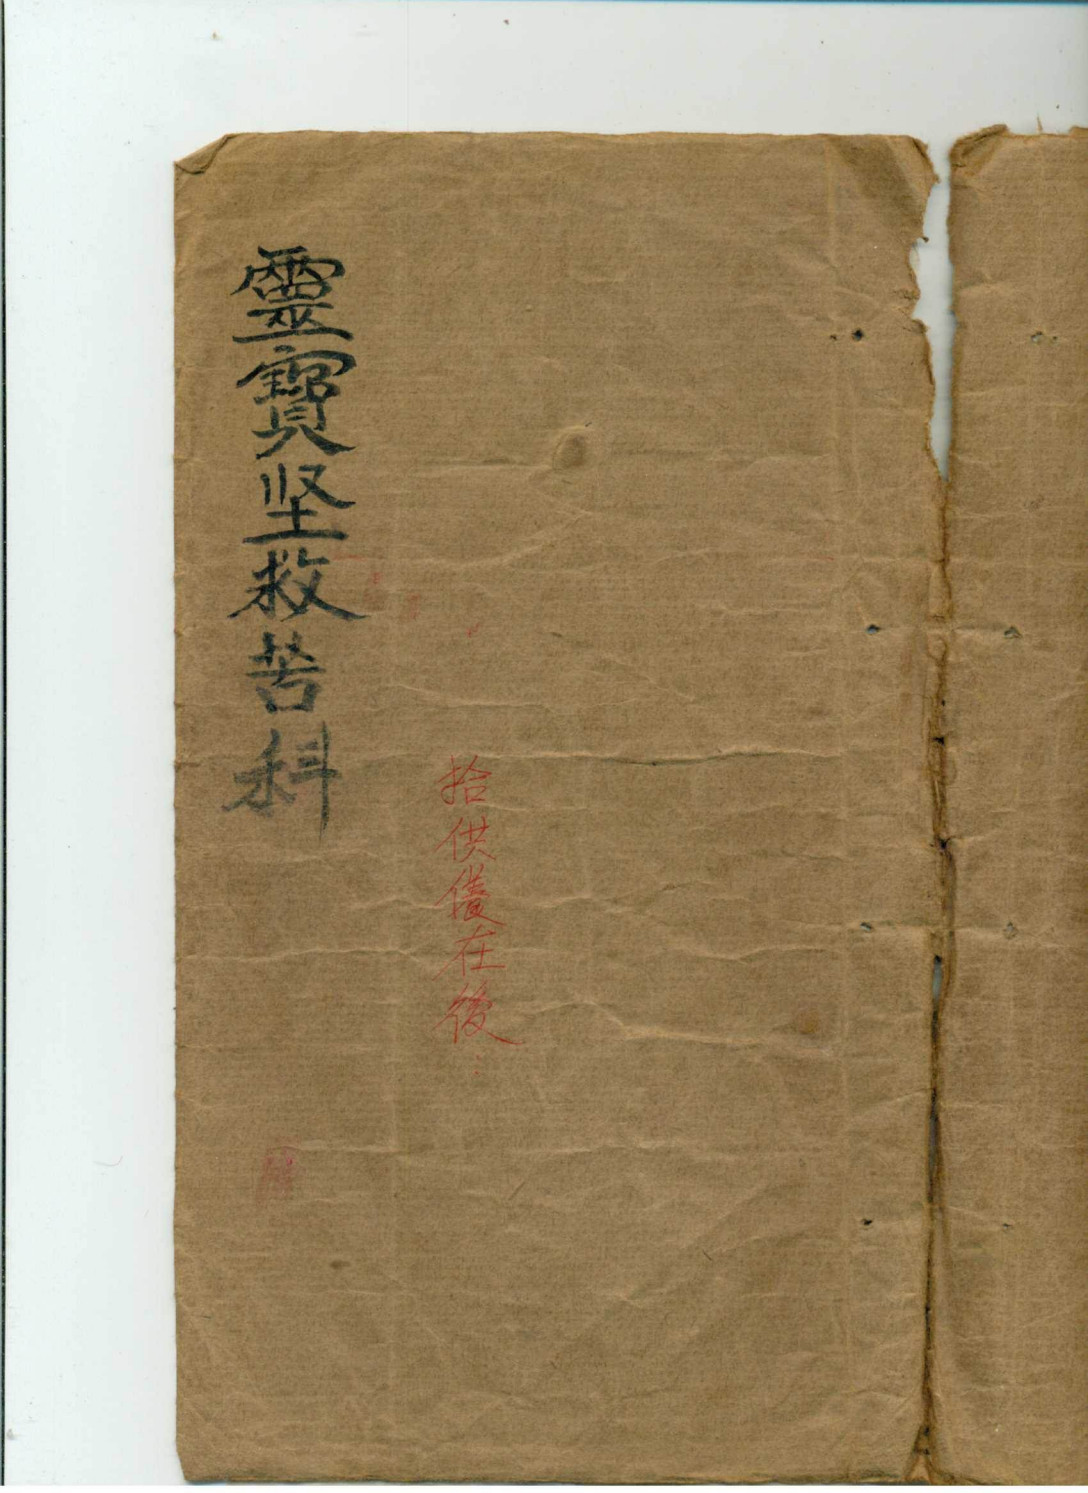 靈寶坚救苦科
拾供儀在後